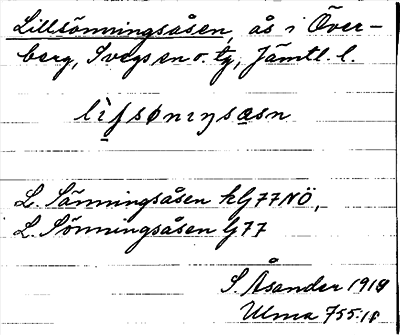 Lillsönningsåsen, ås i Över-
berg, Svegs en o. tg, Jämtl. l.
L. Sånningsåsen kG77NÖ,
L. Sönningsåsen G77
S. Åsander 1919
Ulma 755:18